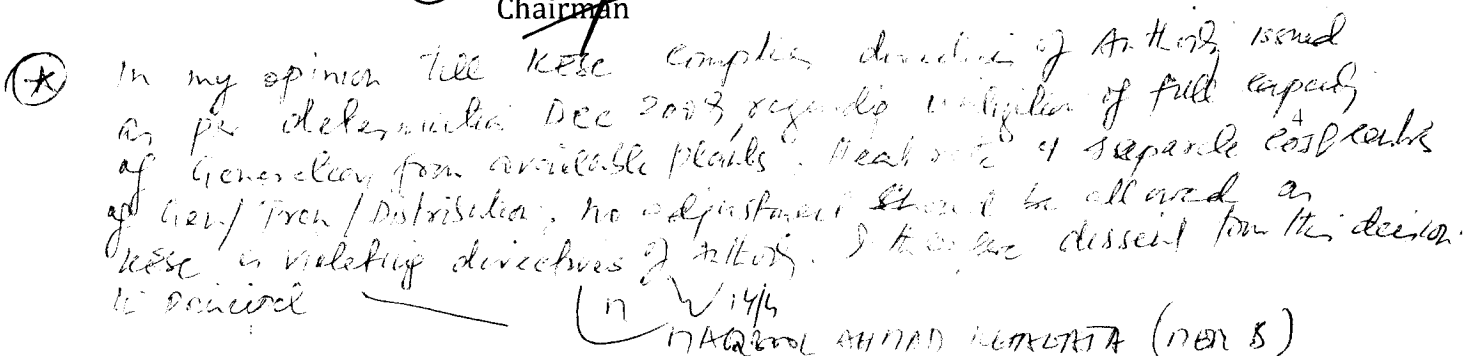 Chairman
In my opinion till KESC complies directives of Authority issued
as per determination Dec 2009, regarding utilization of full capacity
of Generation from available plants. Heat rate & separate cost centres
of Gen/Tran/Distribution, no adjustment should be allowed as
KESC is violating directives of Authority. I therefore dissent from this decision
in principal
14/4
MAQBOOL AHMAD KHAWAJA (MEM